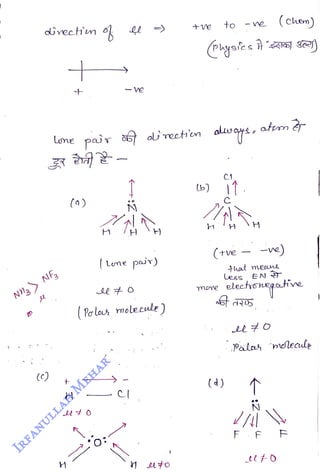 direction of μ ⇒ +ve to -ve (Chem)
(Physics में इसका उल्टा)
+ -ve
Lone pair की direction always, atom से
दूर होती है -
(a)
N
H H H
(Lone pair)
μ ≠ 0
(Polar molecule)
NH3 > NF3
μ
(b)
Cl
C
H H H
(+ve — -ve)
that means
Less EN से
more electronegative
की तरफ
μ ≠ 0
Polar molecule
(c)
+ -
H — Cl
μ ≠ 0
O
H H μ≠0
(d)
N
F F F
μ ≠ 0
IRFANULLAH MEHAR